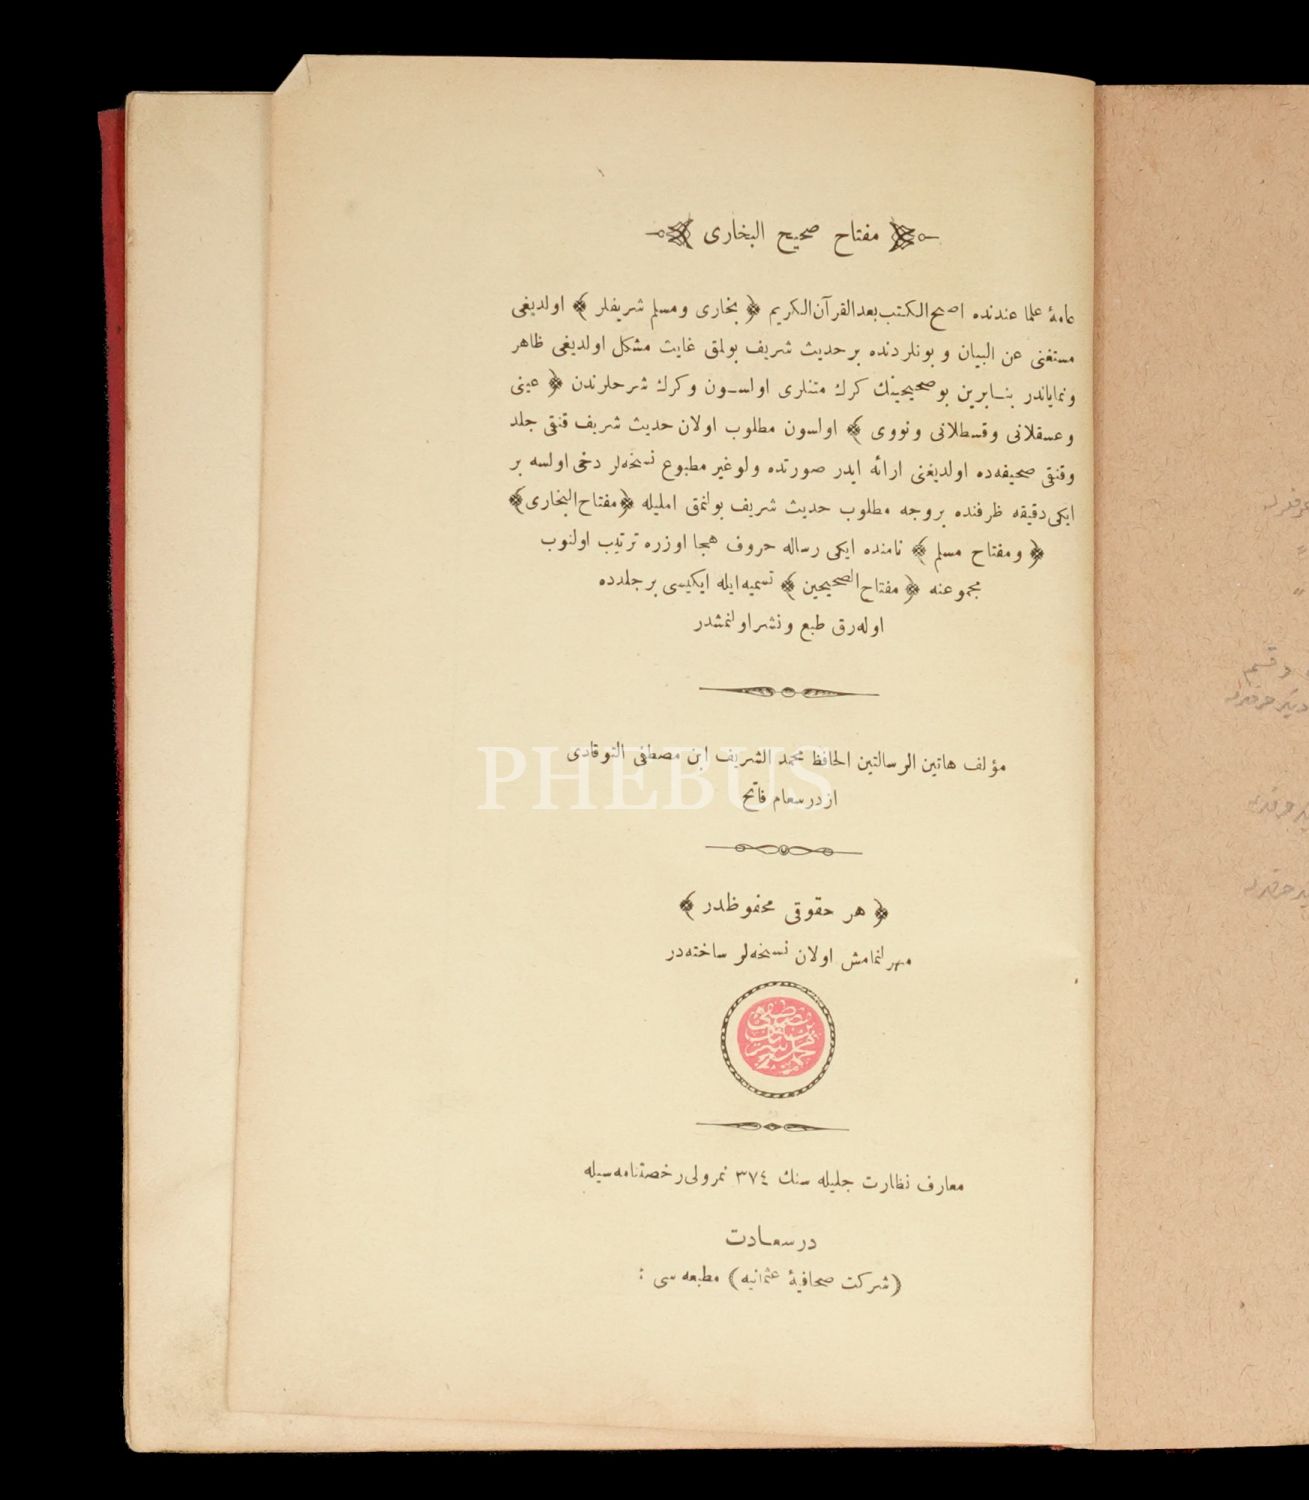 مفتاح صحيح البخارى
عامهٔ علما عندنده اصح الكتب بعد القرآن الكريم ﴿ بخارى ومسلم شريفلر ﴾ اولديغى
مستغنى عن البيان و بونلردنده بر حديث شريف بولمق غايت مشكل اولديغى ظاهر
ونماياندر بنــابرين بو صحيحينك كرك متنلرى اولســون وكرك شرحلرندن ﴿ عينى
وعسقلانى وقسطلانى ونووى ﴾ اولسون مطلوب اولان حديث شريف قنغى جلد
وقنغى صحيفه‌ده اولديغنى ارائه ايدر صورتده ولو غير مطبوع نسخه‌لر دخى اولسه بر
ايكى دقيقه ظرفنده بروجه مطلوب حديث شريف بولنمق امليله ﴿مفتاح البخارى﴾
﴿ ومفتاح مسلم ﴾ نامنده ايكى رساله حروف هجا اوزره ترتيب اولنوب
مجموعنه ﴿ مفتاح الصحيحين ﴾ تسميه ايله ايكيسى بر جلدده
اوله‌رق طبع ونشر اولنمشدر
مؤلف هاتين الرسالتين الحافظ محمد الشريف ابن مصطفى التوقادى
از درسعام فاتح
PHEBUS
﴿ هر حقوقى محفوظدر ﴾
مهرلنمامش اولان نسخه‌لر ساخته‌در
معارف نظارت جليله سنك ٣٧٤ نمرولى رخصتنامه سيله
درسعــادت
(شركت صحافيهٔ عثمانيه) مطبعه سى :